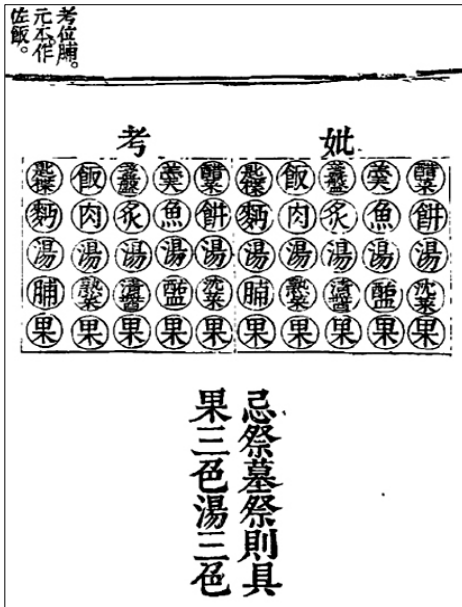 考位脯。
元本。作
佐飯。
考 妣
匙楪 飯 盞盤 羹 醋菜 匙楪 飯 盞盤 羹 醋菜
麪 肉 炙 魚 餠 麪 肉 炙 魚 餠
湯 湯 湯 湯 湯 湯 湯 湯 湯 湯
脯 熟菜 淸醬 醢 沈菜 脯 熟菜 淸醬 醢 沈菜
果 果 果 果 果 果 果 果 果 果
忌祭墓祭則具
果三色湯三色